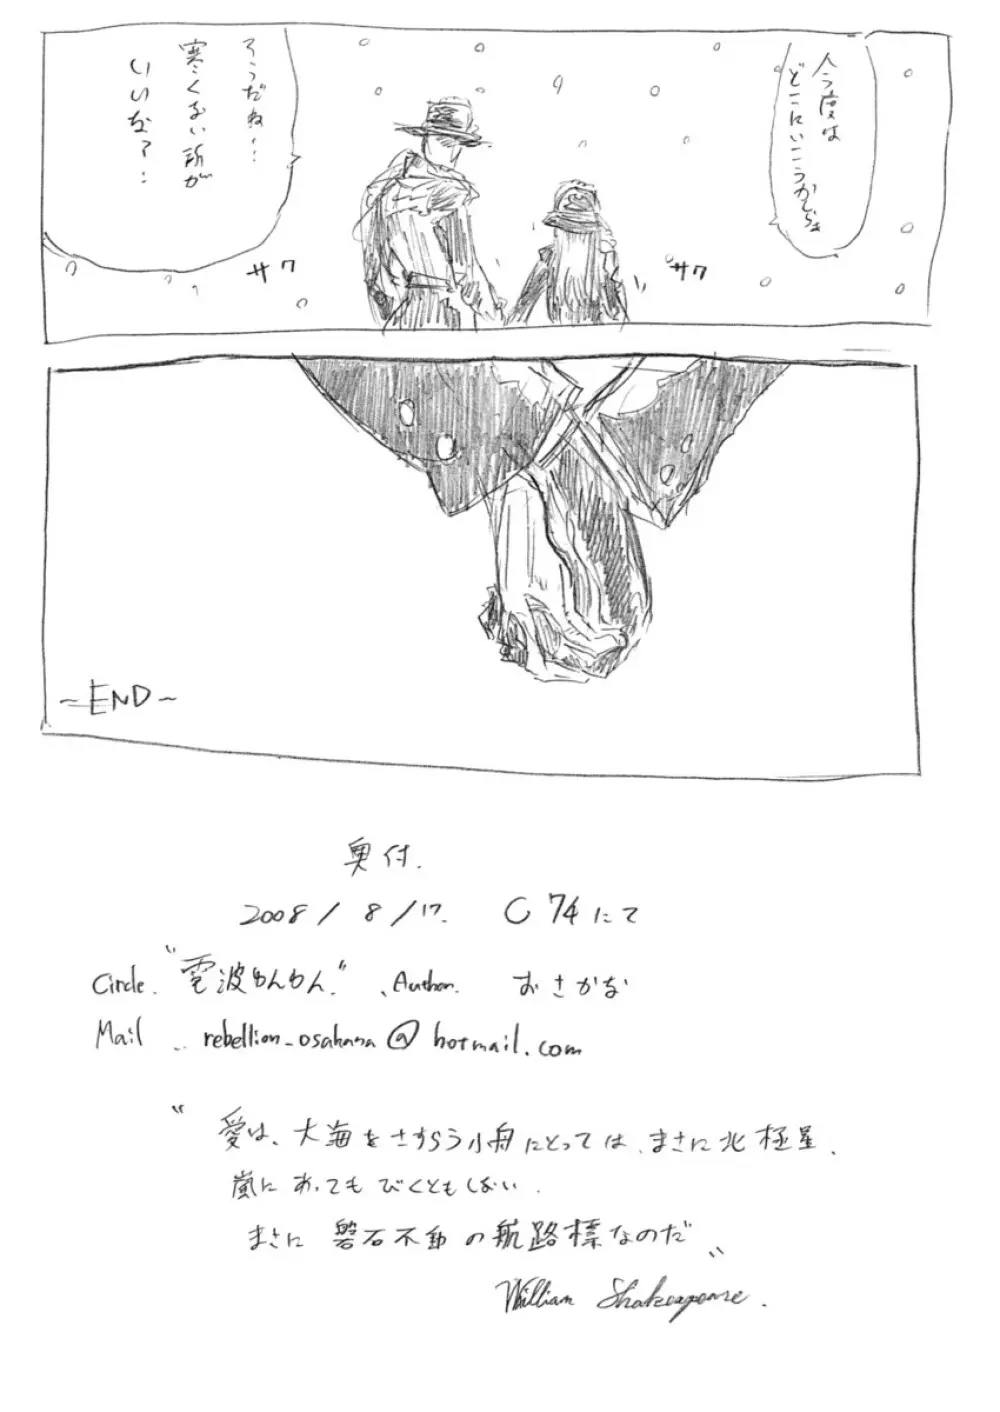 今度は
どこにいこうかしらぁ
そうだね…
寒くない所が
いいな?…
サク
サク
~END~
奥付.
2008/8/17. C74にて
Circle. "電波わんわん." 、Author. おさかな
Mail … rebellion_osakana@hotmail.com
〝愛は、大海をさすらう小舟にとっては、まさに北極星.
嵐にあってもびくともしない.
まさに磐石不動の航路標なのだ〟
William Shakespeare.